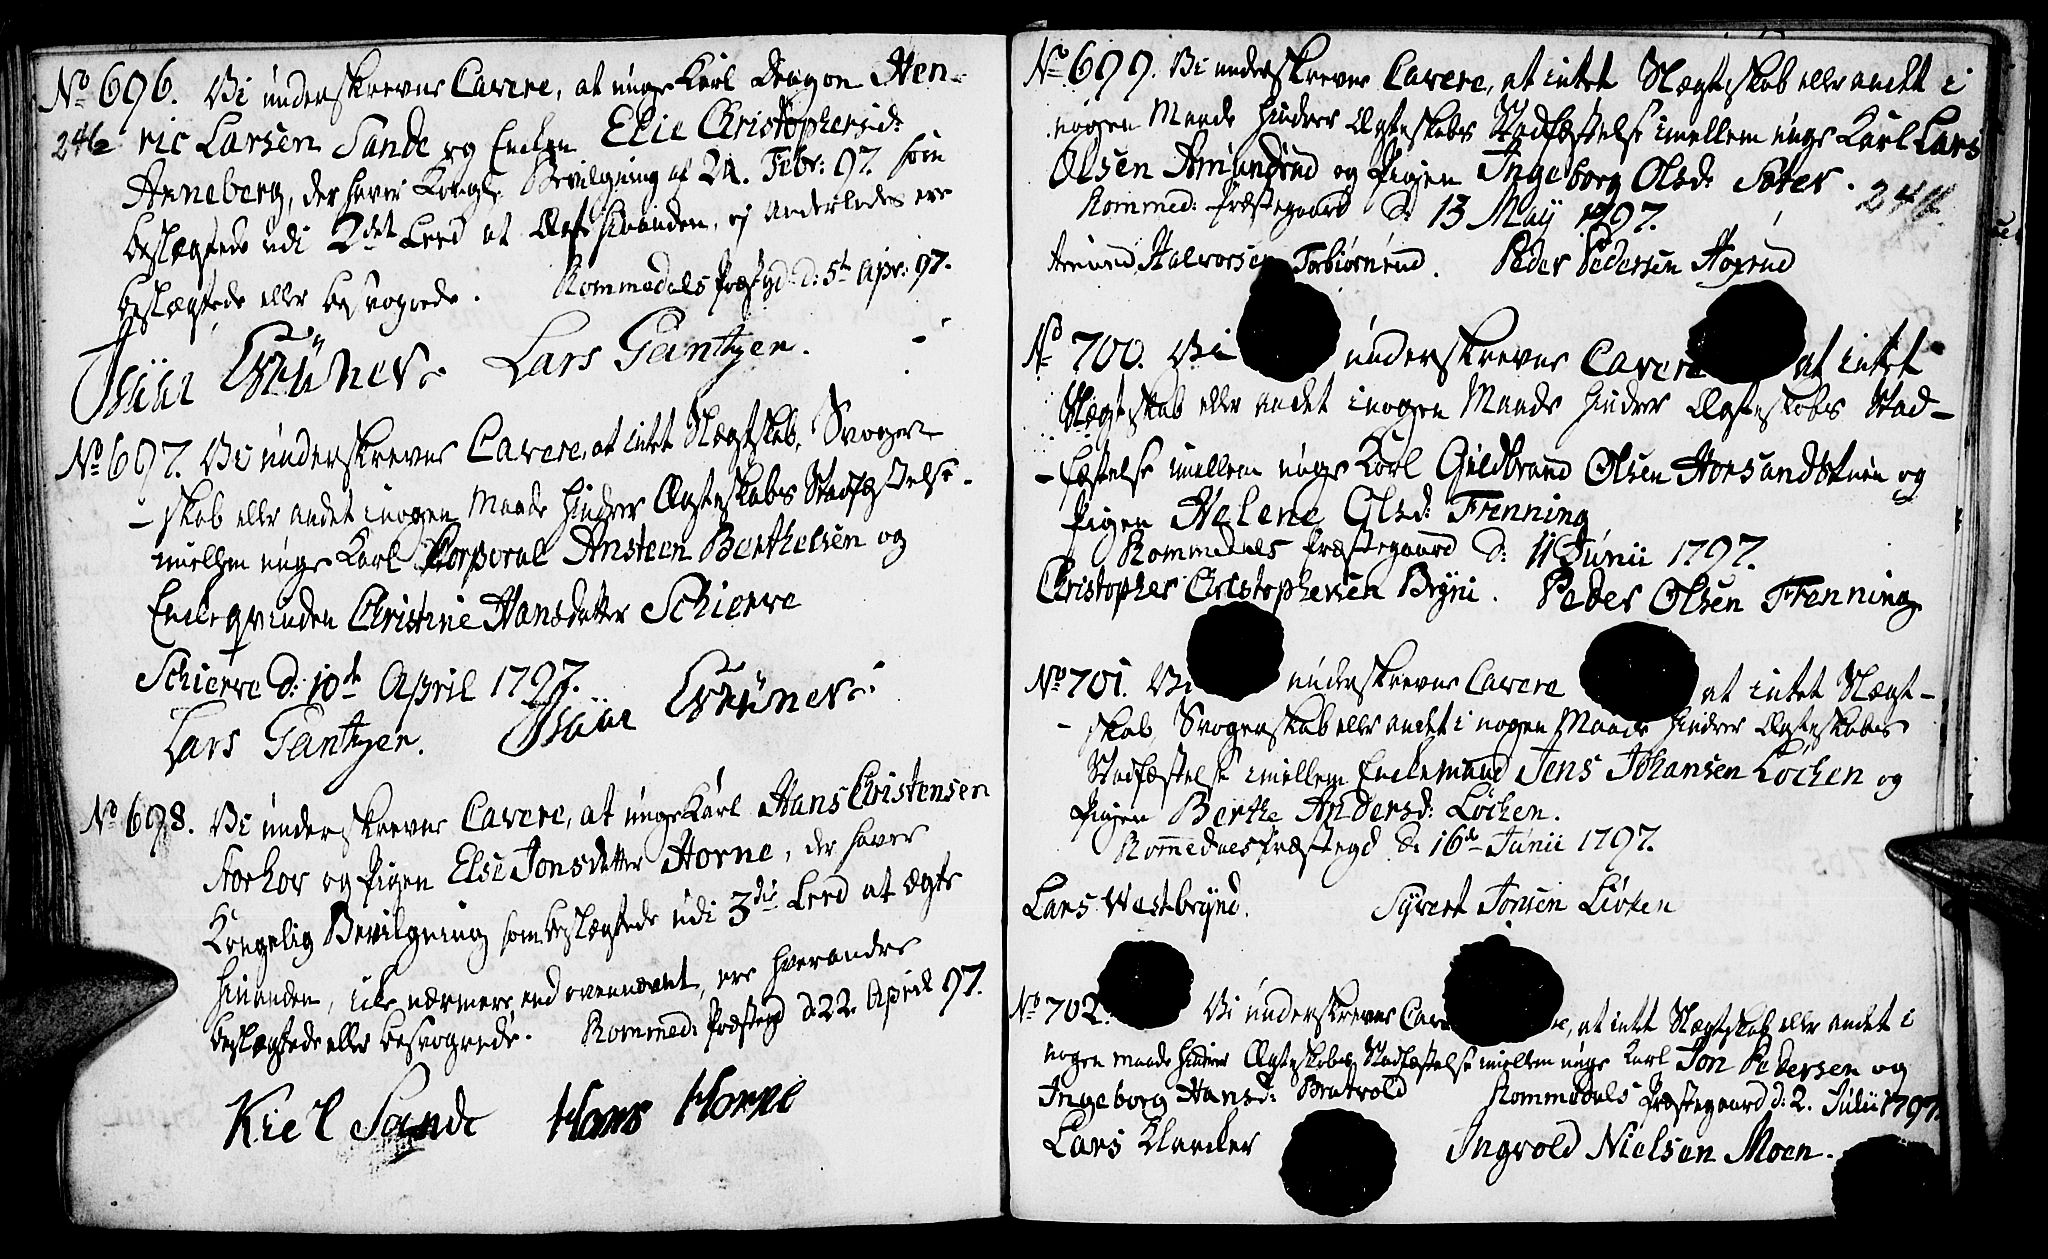 No 696. Vi underskrevne Cavere, at unge Karl Dragon Hen-
246 ric Larsen Sande og Enken Elie Christophersd:
Anneberg, der haver Kongl. Bevilgning af 24. Febr: 97. som
beslægtede udi 2det Leed at Ægte hinanden, ej anderledes ere
beslægtede eller besvogrede. Rommedals Præstgd d: 5te Apr: 97.
Isaac Grüner. Lars Gantzen.
No 697. Vi underskrevne Cavere, at intet Slægtskab, Svoger-
-skab eller andet i nogen Maade hindrer Ægteskabs Stadfæstelse
imellem unge Karl Korporal Ansteen Berthelsen og
Enkeqvinden Christine Hansdatter Schierve
Schierve d: 10de April 1797.
Lars Gantzen. Isaac Grüner.
No 698. Vi underskrevne Cavere, at unge Karl Hans Christensen
Storhov og Pigen Else Jonsdatter Horne, der haver
Kongelig Bevilgning som beslægtede udi 3die Leed at ægte
hinanden, ikke nærmere end ovennævnt, ere hverandre
beslægtede eller besvogrede. Rommed: Præstegd d. 22. April 97.
Kiell Sande Hans Horne
No 699. Vi underskrevne Cavere, at intet Slægtskab eller andet i
nogen Maade hindrer Ægteskabs Stadfæstelse imellem unge Karl Lars
Olsen Amundrud og Pigen Ingeborg Olsd: Sæter. 244
Rommed: Præstegaard d: 13 May 1797.
Amund Halvorsen Torbiørnrud. Peder Pedersen Horrud
No 700. Vi underskrevne Cavere at intet
Slægtskab eller andet i nogen Maade hindrer Ægteskabs Stad-
-fæstelse imellem unge Karl Guldbrand Olsen Horsandstuen og
Pigen Helene Olsd: Frenning
Rommedals Præstegaard d: 11 Junii 1797.
Christopher Christophersen Bryni. Peder Olsen Frenning
No 701. Vi underskrevne Cavere at intet Slægt-
-skab Svogerskab eller andet i nogen Maade hindrer Ægteskabs
Stadfæstelse imellem Enkemand Jens Johansen Løchen og
Pigen Berthe Andersd: Løchen.
Rommedals Præstegd d. 16de Junii 1797.
Lars Westbrynd. Syvert Jonsen Løken
No 702. Vi underskrevne Cavere, at intet Slægtskab eller andet i
nogen maade hindrer Ægteskabs Stadfæstelse imellem unge Karl Jon Pedersen og
Ingeborg Hansd: Bratvold Rommedals Præstegaard d: 2. Julii 1797.
Lars Ingvold Nielsen Moen.